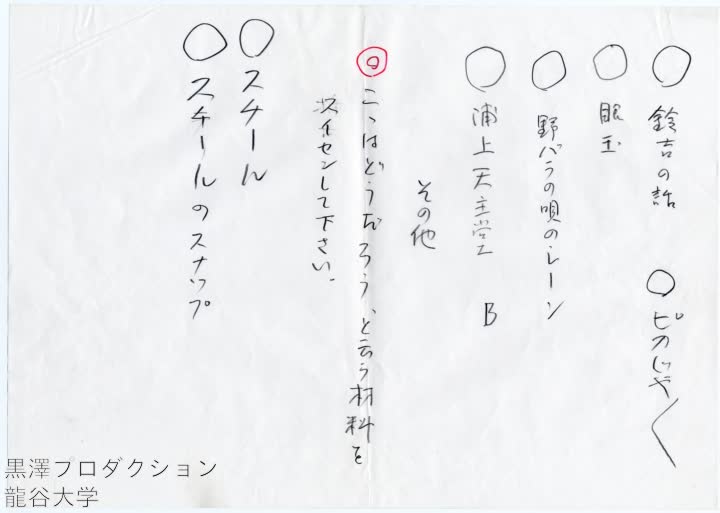 ○ 鈴吉の話
○ ピカじゃ〱
○ 眼玉
○ 野バラの唄のシーン
○ 浦上天主堂 B
その他
◎ こゝはどうだろう、と云う材料を
スイセンして下さい。
○ スチール
○ スチールのスナップ
黒澤プロダクション
龍谷大学